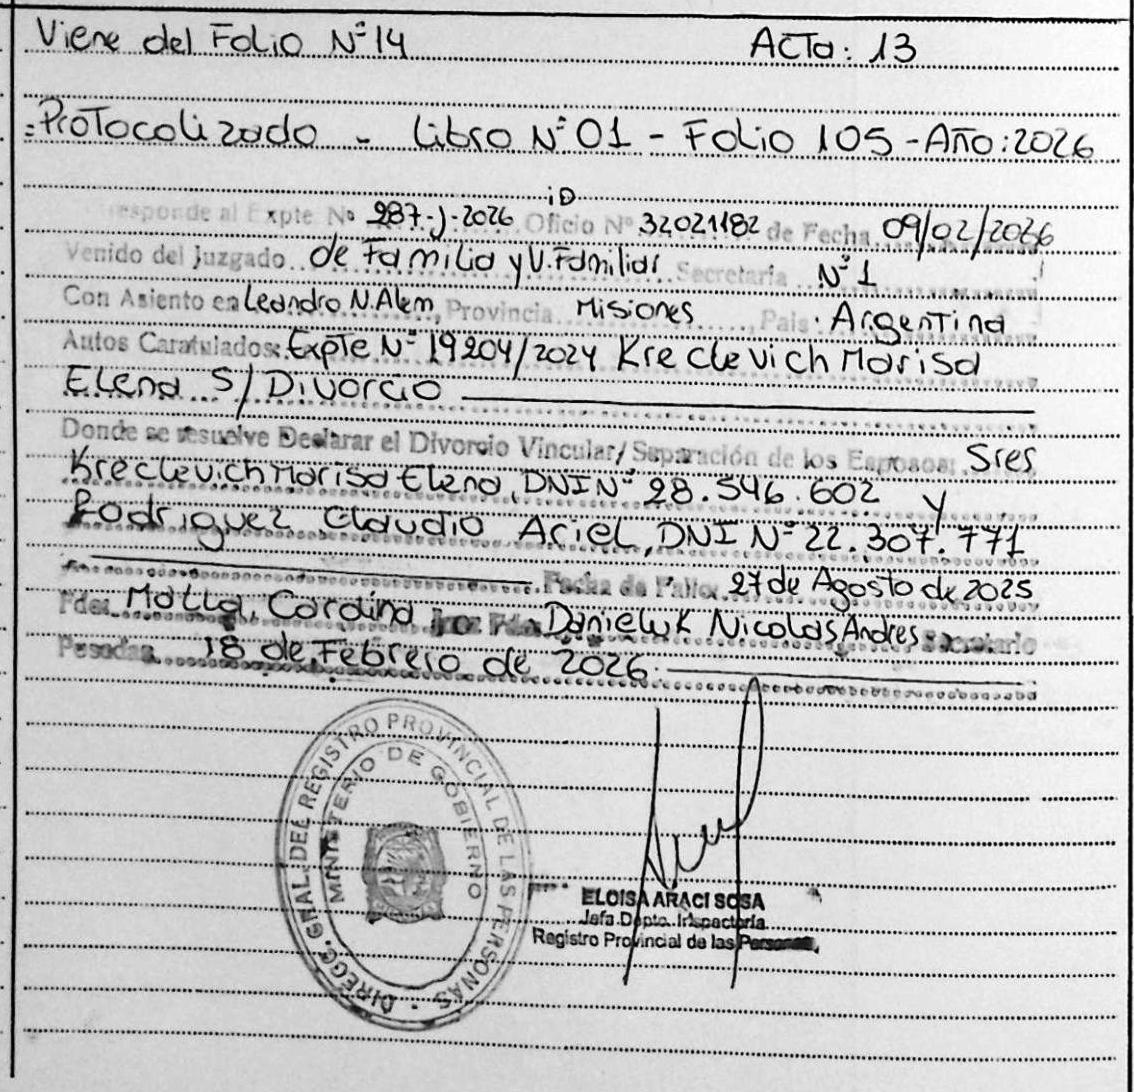 Viene del Folio N° 14 Acta: 13
Protocolizado - Libro N° 01 - Folio 105 - Año: 2026
iD
responde al Expte Nº 287-J-2026 Oficio Nº 32021182 de Fecha 09/02/2026
Venido del Juzgado de Familia y V. Familiar Secretaría N° 1
Con Asiento en Leandro N. Alem, Provincia Misiones, Pais Argentina
Autos Caratulados: Expte N° 19204/2024 Kreclevich Marisa
Elena S/ Divorcio
Donde se resuelve Declarar el Divorcio Vincular/ Separación de los Esposos: Sres
Kreclevich Marisa Elena, DNI N° 28.546.602 y
Rodriguez Claudio Ariel, DNI N° 22.307.771
Fecha de Fallo: 27 de Agosto de 2025
Fdo: Carolina Juez Fdo: Danieluk Nicolas Andres Secretario
Posadas 18 de Febrero de 2026.
DIRECC. GRAL. DEL REGISTRO PROVINCIAL DE LAS PERSONAS
MINISTERIO DE GOBIERNO
ELOISA ARACI SOSA
Jefa Dpto. Inspectoría
Registro Provincial de las Personas